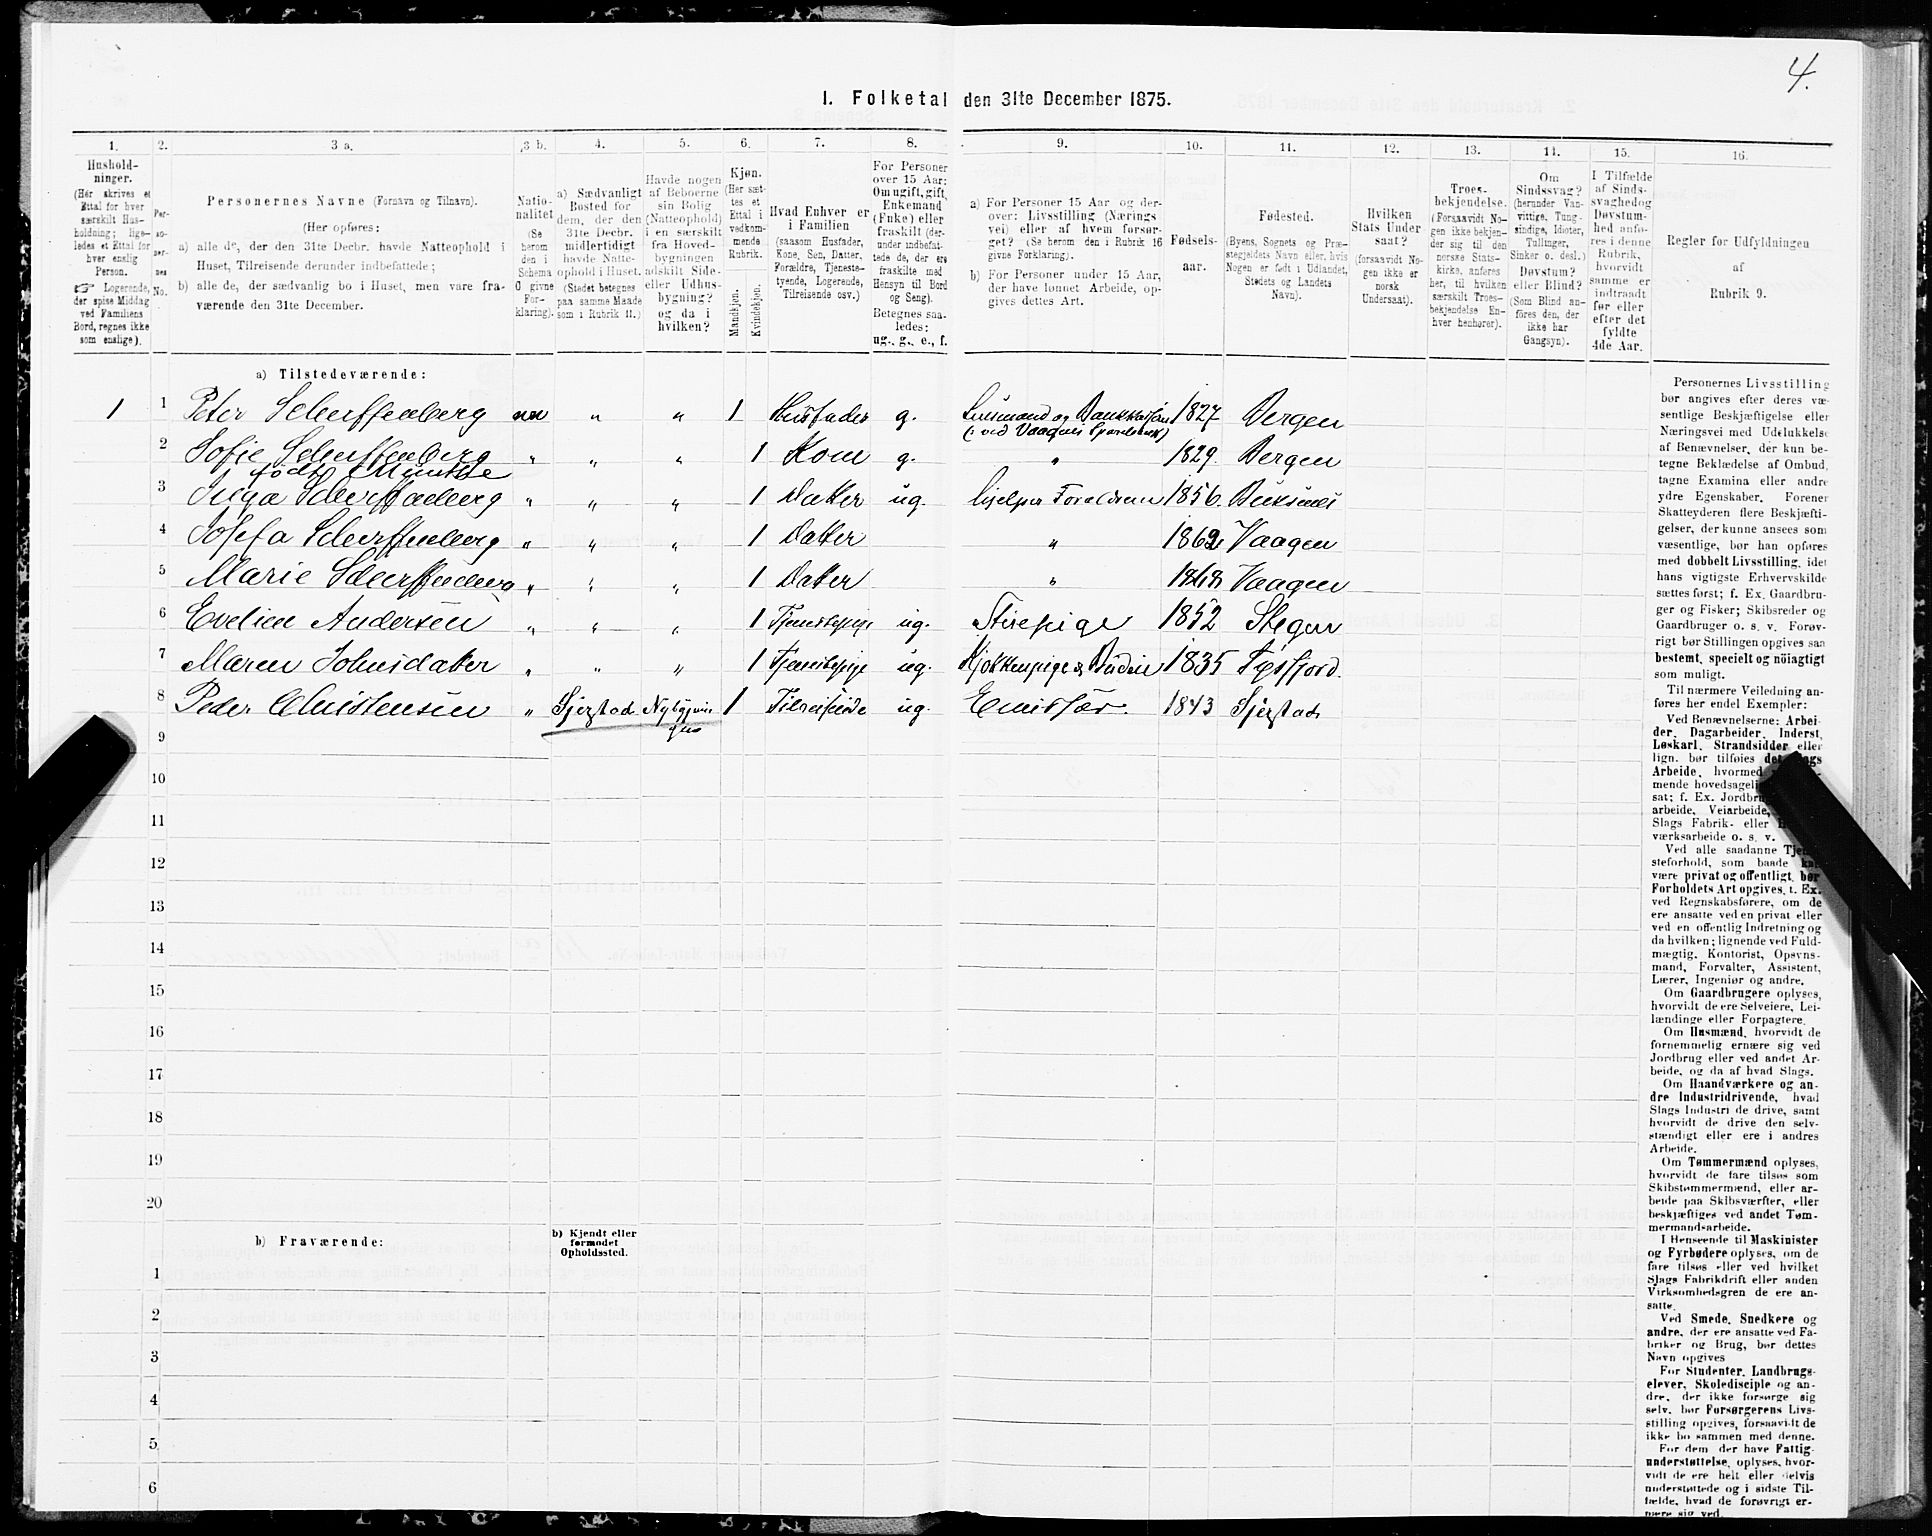 4.
I. Folketal den 31te December 1875.
1. 2. 3 a. 3 b. 4. 5. 6. 7. 8. 9. 10. 11. 12. 13. 14. 15. 16.
Hushold-
ninger.
(Her skrives et
Ettal for hver
særskilt Hus-
holdning; lige-
ledes et Ettal for
hver enslig
Person.
☞ Logerende,
der spise Middag
ved Familiens
Bord, regnes ikke
som enslige).
Per-
so-
ner-
nes
No.
Personernes Navne (Fornavn og Tilnavn).
(Her opføres:
a) alle de, der den 31te Decbr. havde Natteophold i
Huset, Tilreisende derunder indbefattede;
b) alle de, der sædvanlig bo i Huset, men vare fra-
værende den 31te December.
Natio-
nalitet
(Se
herom
den i
Schema
0 givne
For-
klaring).
a) Sædvanligt
Bosted for
dem, der den
31te Decbr.
midlertidigt
havde Natte-
ophold i Huset.
(Stedet betegnes
paa samme Maade
som i Rubrik 11.)
Havde nogen
af Beboerne
sin Bolig
(Natteophold)
i en særskilt
fra Hoved-
bygningen
adskilt Side-
eller Udhus-
bygning?
og da i
hvilken?
Kjøn.
(Her sæt-
tes et
Ettal i
vedkom-
mende
Rubrik.
Mandkjøn.
Kvindekjøn.
Hvad Enhver er
i Familien
(saasom Husfader,
Kone, Søn, Datter,
Forældre, Tjeneste-
tyende, Logerende,
Tilreisende osv.)
For Personer
over 15 Aar:
Om ugift, gift,
Enkemand
(Enke) eller
fraskilt (der-
under indbefat-
tede de, der ere
fraskilte med
Hensyn til Bord
og Seng).
Betegnes saa-
ledes:
ug., g., e., f.
a) For Personer 15 Aar og der-
over: Livsstilling (Nærings
vei) eller af hvem forsør-
get? (Se herom den i Rubrik 16
givne Forklaring).
b) For Personer under 15 Aar,
der have lønnet Arbeide, op-
gives dettes Art.
Fødsels-
aar.
Fødested.
(Byens, Sognets og Præ-
stegjeldets Navn eller, hvis
Nogen er født i Udlandet,
Stedets og Landets
Navn).
Hvilken
Stats Under
saat?
(forsaavidt No-
gen ikke er
norsk
Undersaat).
Troes-
bekjendelse.
(Forsaavidt No-
gen ikke bekjen-
der sig til den
norske Stats-
kirke, anføres
her, til hvilken
særskilt Troes-
bekjendelse En-
hver henhører).
Om
Sindssvag?
(herunder Van-
vittige, Tung-
sindige, Idioter,
Tullinger,
Sinker o. desl.)
Døvstum?
eller Blind?
(Som Blind an-
føres den, der
ikke har
Gangsyn).
I Tilfælde
af Sinds-
svaghed og
Døvstum-
hed anfø-
res i denne
Rubrik,
hvorvidt
samme er
indtraadt
før eller
efter det
fyldte
4de Aar.
Regler for Udfyldningen
af
Rubrik 9.
a) Tilstedeværende:
1 1 Peter Scherffenberg nor " " 1 Husfader g. Lensmand og Bankkasserer 1827 Bergen
(: ved Vaagens Sparebank)
2 Sofie Scherffenberg " " " 1 Kone g. " 1829. Bergen
født Müntke
3 Inga Scherffenberg " " " 1 Datter ug. hjelper Forældrene 1856. Buksnes
4 Josefa Scherffenberg " " " 1 Datter " 1862 Vaagen
5 Marie Scherffenberg " " " 1 Datter " 1868 Vaagen
6 Eveline Andersen " " " 1 Tjenestepige ug. Stuepige 1852 Stegen
7 Maren Johnsdatter " " " 1 Tjenstepige ug. Kjøkkenpige & Budeie 1835 Tysfjord.
8 Peder Christensen " Gjerstad 1 Tilreisende ug. Emissær. 1843 Gjerstad
9
10
11
12
13
14
15
16
17
18
19
20
b) Fraværende:
b) Kjendt eller
formodet
Opholdssted.
1
2
3
4
5
6
Personernes Livsstilling
bør angives efter deres væ-
sentlige Beskjæftigelse eller
Næringsvei med Udelukkelse
af Benævnelser, der kun be-
tegne Beklædelse af Ombud,
tagne Examina eller andre
ydre Egenskaber. Forener
Skatteyderen flere Beskjæfti-
gelser, der kunne ansees som
væsentlige, bør han opføres
med dobbelt Livsstilling, idet
hans vigtigste Erhvervskilde
sættes først; f. Ex. Gaardbru-
ger og Fisker; Skibsreder og
Gaardbruger o. s. v. Forøv-
rigt bør Stillingen opgives saa
bestemt, specielt og nøiagtigt
som muligt.
Til nærmere Veiledning an-
føres her endel Exempler:
Ved Benævnelserne: Arbei-
der, Dagarbeider, Inderst,
Løskarl, Strandsidder eller
lign. bør tilføies det Slags
Arbeide, hvormed
mende hovedsageli
sat; f. Ex. Jordbru
arbeide, Veiarbeide,
Slags Fabrik- eller
værksarbeide o. s. v.
Ved alle saadanne Tje
steforhold, som baade kan
være privat og offentligt, bør
Forholdets Art opgives, t. Ex.
ved Regnskabsførere, om de
ere ansatte ved en privat eller
ved en offentlig Indretning og
da hvilken; lignende ved Fuld-
mægtig, Kontorist, Opsyns-
mand, Forvalter, Assistent,
Lærer, Ingeniør og andre.
Om Gaardbrugere oplyses,
hvorvidt de ere Selveiere, Lei-
lændinge eller Forpagtere.
Om Husmænd, hvorvidt de
fornemmelig ernære sig ved
Jordbrug eller ved andet Ar-
beide, og da af hvad Slags.
Om Haandværkere og an-
dre Industridrivende, hvad
Slags Industri de drive, samt
hvorvidt de drive den selv-
stændigt eller ere i andres
Arbeide.
Om Tømmermænd oplyses,
hvorvidt de fare tilsøs som
Skibstømmermænd, eller ar-
beide paa Skibsværfter, eller
beskjæftiges ved andet Tøm-
mermandsarbeide.
I Henseende til Maskinister
og Fyrbødere oplyses, om de
fare tilsøs eller ved hvilket
Slags Fabrikdrift eller anden
Virksomhedsgren de ere an-
satte.
Ved Smede, Snedkere og
andre, der ere ansatte ved Fa-
briker og Brug, bør dettes
Navn opgives
For Studenter, Landbrugs-
elever, Skoledisciple og an-
dre, der ikke forsørge sig
selv, bør Forsørgerens Livs-
stilling opgives, forsaavidt de
ikke bo sammen med denne.
For dem, der have Fattig-
understøttelse, oplyses, hvor-
vidt de ere helt eller delvis
understøttede og i sidste Til-
fælde, hvad de forøvrigt er-
nære sig ved.